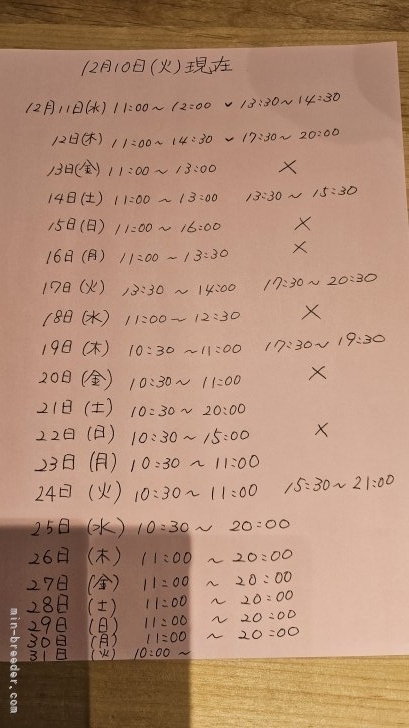 12月10日(火)現在
12月11日(水) 11:00～12:00 ～ 13:30～14:30
12日(木) 11:00～14:30 ～ 17:30～20:00
13日(金) 11:00～13:00 ×
14日(土) 11:00～13:00 13:30～15:30
15日(日) 11:00～16:00 ×
16日(月) 11:00～13:30 ×
17日(火) 13:30～14:00 17:30～20:30
18日(水) 11:00～12:30 ×
19日(木) 10:30～11:00 17:30～19:30
20日(金) 10:30～11:00 ×
21日(土) 10:30～20:00
22日(日) 10:30～15:00 ×
23日(月) 10:30～11:00
24日(火) 10:30～11:00 15:30～21:00
25日(水) 10:30～20:00
26日(木) 11:00～20:00
27日(金) 11:00～20:00
28日(土) 11:00～20:00
29日(日) 11:00～20:00
30日(月) 11:00～20:00
31日(火) 10:00～
min-breeder.com